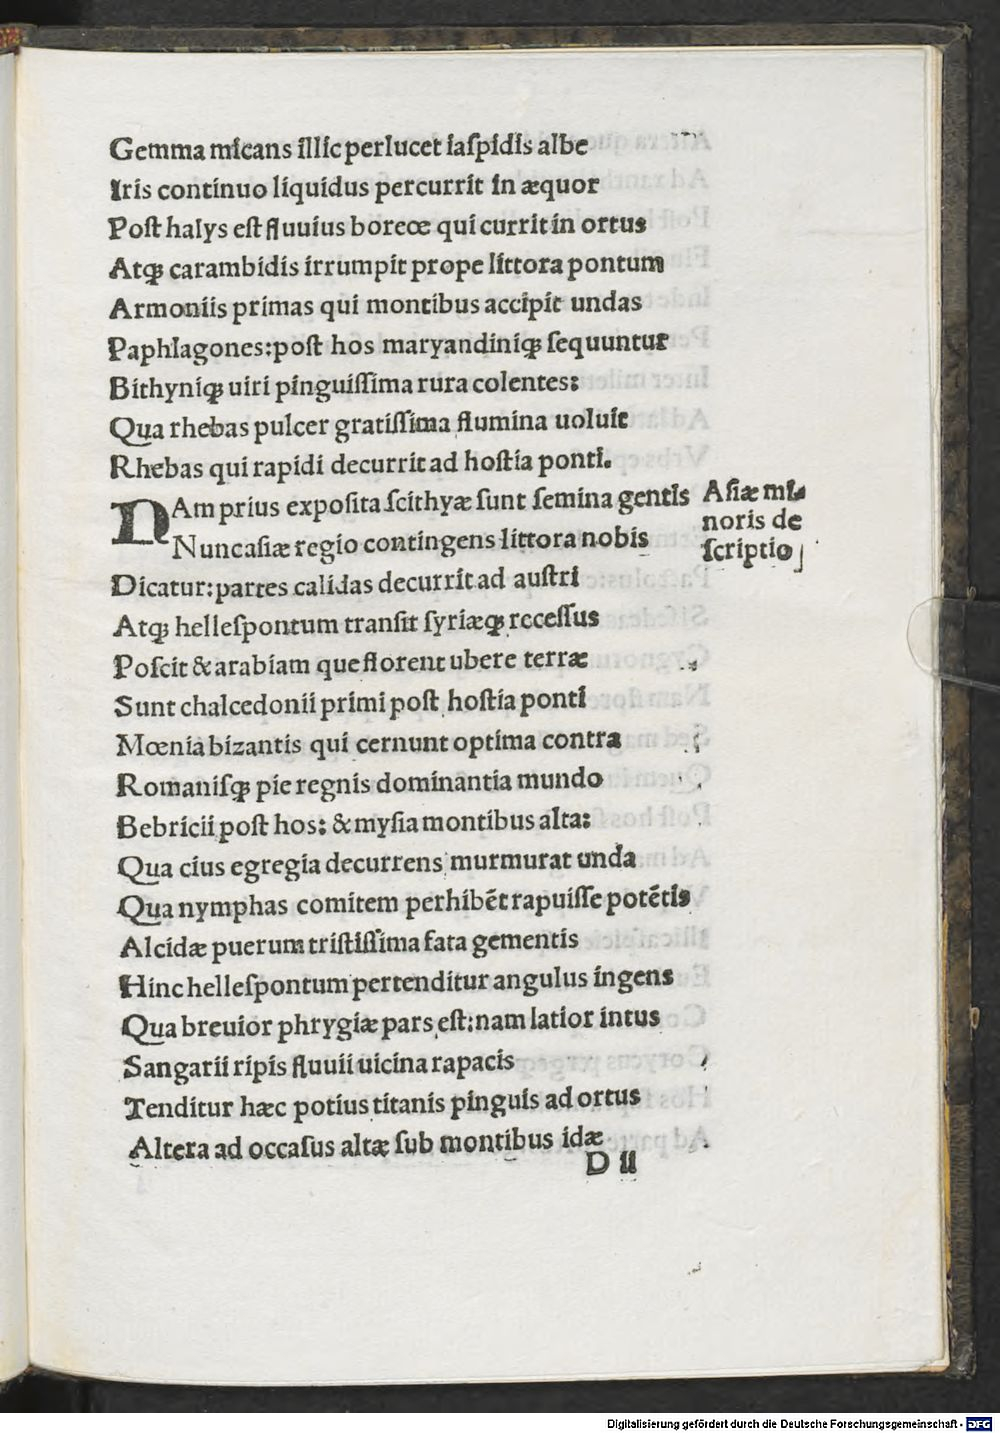 Gemma micans illic perlucet iaſpidis albe
Iris continuo liquidus percurrit in æquor
Poſt halys eſt fluuius boreœ qui currit in ortus
Atqꝫ carambidis irrumpit prope littora pontum
Armoniis primas qui montibus accipit undas
Paphlagones:poſt hos maryandiniqꝫ ſequuntur
Bithyniqꝫ uiri pinguiſſima rura colentes:
Qua rhebas pulcer gratiſſima flumina uoluit
Rhebas qui rapidi decurrit ad hoſtia ponti.
NAm prius expoſita ſcithyæ ſunt ſemina gentis
Nunc aſiæ regio contingens littora nobis
Dicatur:partes calidas decurrit ad auſtri
Atqꝫ helleſpontum tranſit ſyriæqꝫ receſſus
Poſcit & arabiam que florent ubere terræ
Sunt chalcedonii primi poſt hoſtia ponti
Mœnia bizantis qui cernunt optima contra
Romaniſqꝫ pie regnis dominantia mundo
Bebricii poſt hos: & myſia montibus alta:
Qua cius egregia decurrens murmurat unda
Qua nymphas comitem perhibēt rapuiſſe potētis
Alcidæ puerum triſtiſſima fata gementis
Hinc helleſpontum pertenditur angulus ingens
Qua breuior phrygiæ pars eſt:nam latior intus
Sangarii ripis fluuii uicina rapacis
Tenditur hæc potius titanis pinguis ad ortus
Altera ad occaſus altæ ſub montibus idæ
D ii
Aſiæ mi-
noris de
ſcriptio
Digitalisierung gefördert durch die Deutsche Forschungsgemeinschaft - DFG